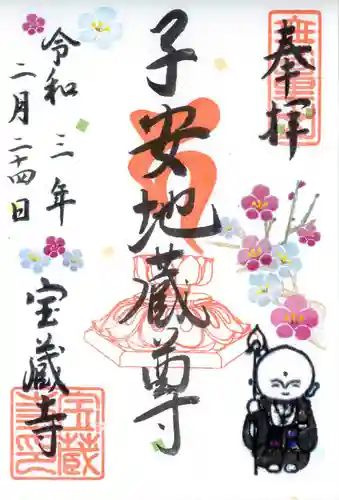 奉拝
子安地蔵尊
令和三年
二月二十四日
宝蔵寺